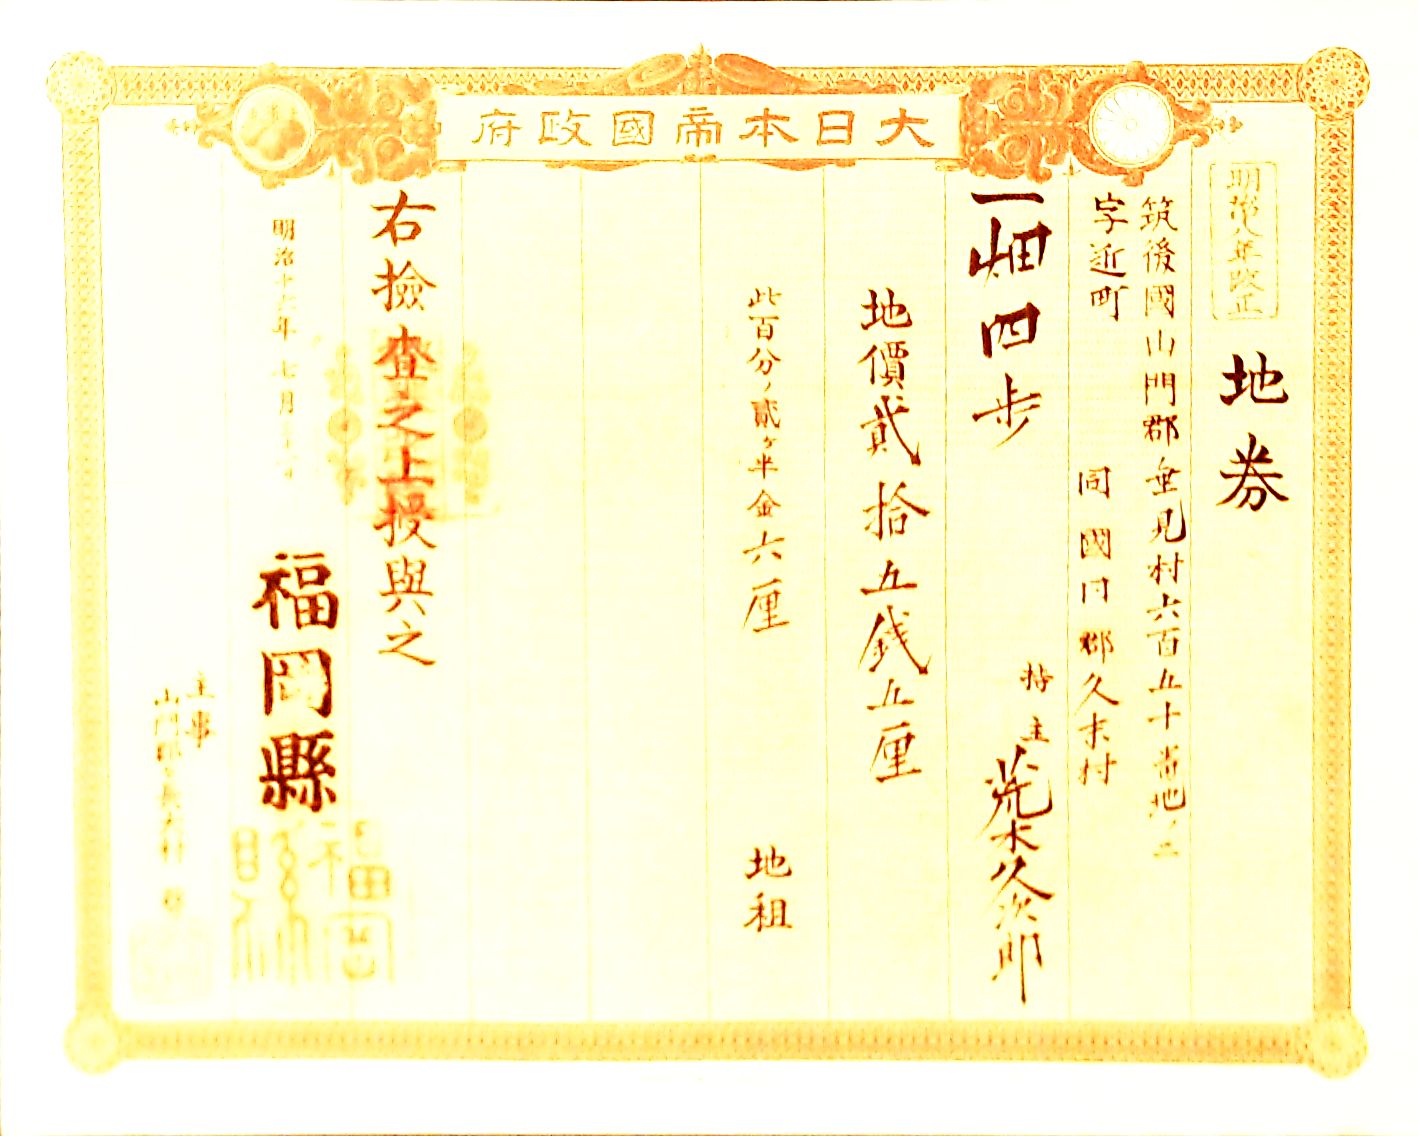 大日本帝國政府
明治八年改正
地券
筑後國山門郡垂見村六百五十番地ノ二
字近町
同國同郡久末村
一畑四歩
持主 荒木久次郎
地價貳拾五錢五厘
此百分ノ貳ヶ半金六厘 地租
右撿査之上授與之
明治十 年七月
福岡縣
主事
山門郡
福岡縣